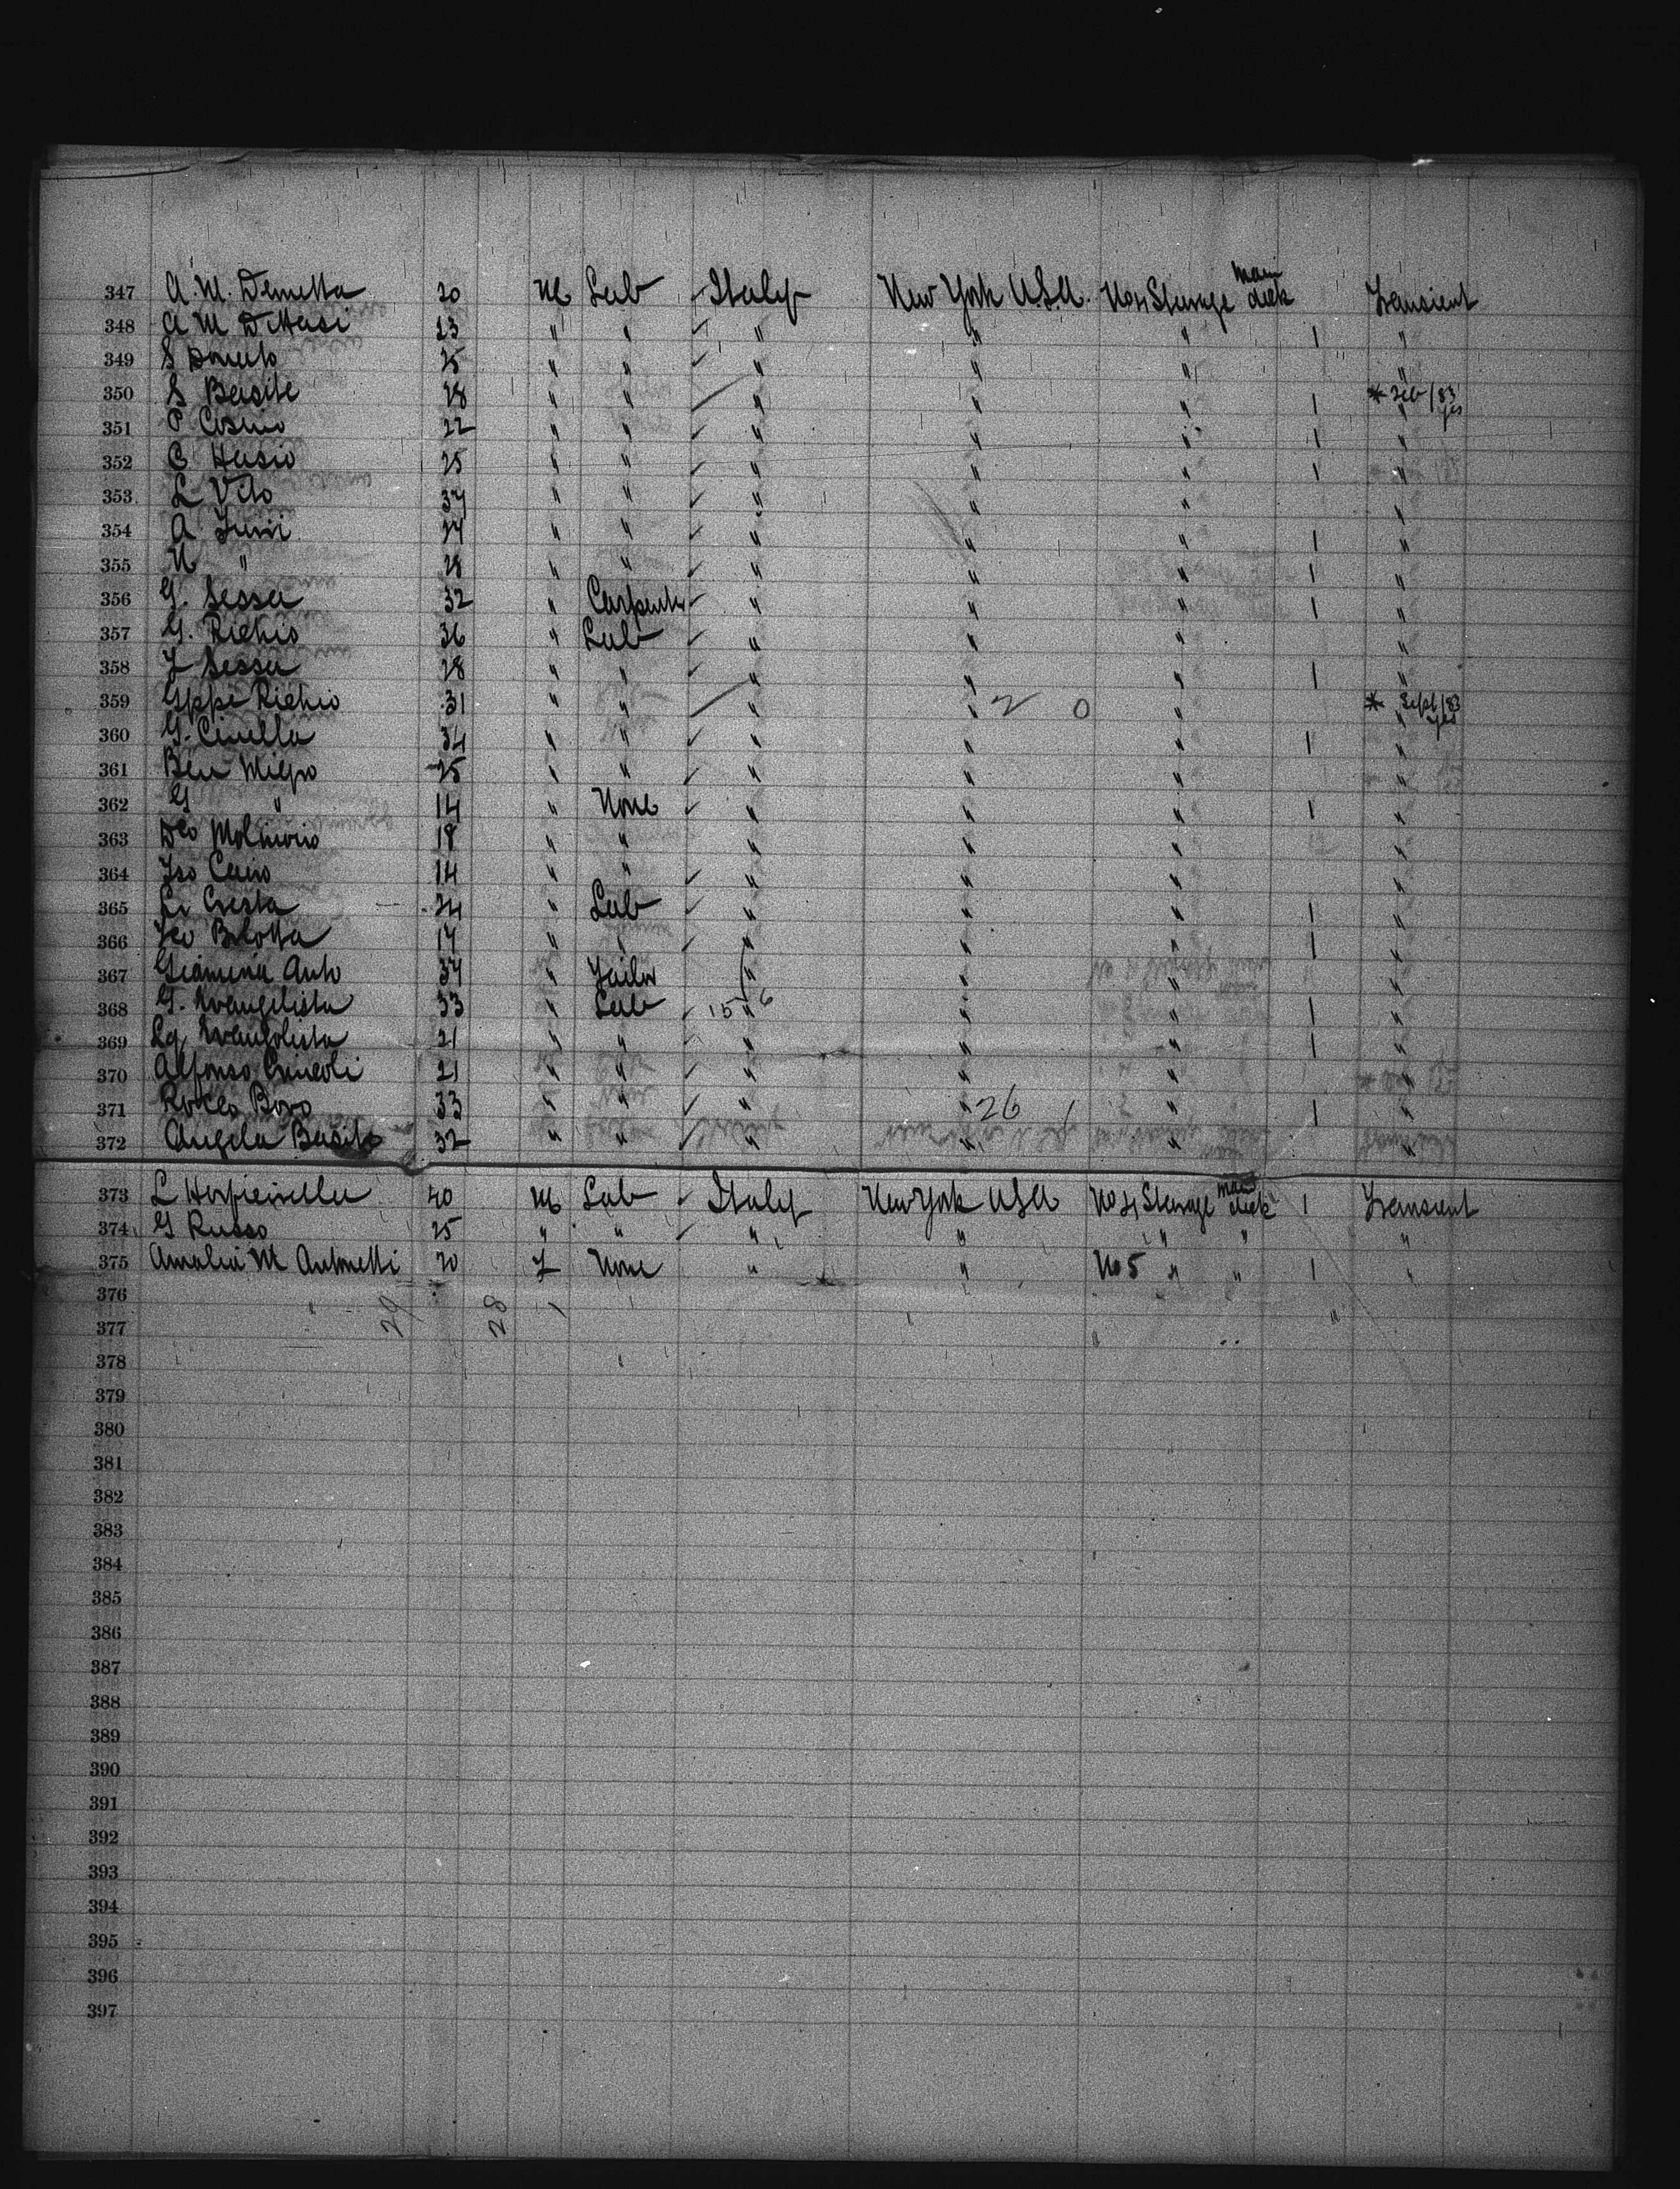 347 A. M. Demetta 20 M Lab Italy New York U.S.A. No 4 Steerage Main deck Transient
348 A M Di Masi 23 " " " " " 1 "
349 S Donato 25 " " " " " "
350 S Basile 28 " " " " " 1 * Feb/83 yes "
351 P Cosmo 22 " " " " " 1 "
352 25 " " " " " 1 "
353 L Vito 34 " " " " " "
354 A 24 " " " " " 1 "
355 N " 28 " " " " " 1 "
356 G. Sessa 32 " Carpenter " " " 1 "
357 G. Richio 36 " Lab " " " "
358 F Sessa 28 " " " " " 1 "
359 Gppe Richio 31 " " " " 2 0 " * Sept/83 yes "
360 G. Cinella 34 " " " " " 1 "
361 Ben 25 " " " " " "
362 G " 14 " None " " " 1 "
363 Molinorio 18 " " " " " "
364 Cairo 14 " " " " " "
365 Cresta 24 " Lab " " " 1 "
366 Bilotta 14 " " " " " 1 "
367 Anto 34 " Tailor " " " "
368 G. Evangelista 33 " Lab 15 " 6 " " 1 "
369 Lg Evangelista 21 " " " " " 1 "
370 Alfonso 21 " " " " " "
371 Rocco Bovo 33 " " " " 26 1 " 1 "
372 Angela Basile 32 " " " " " "
373 L 40 M Lab Italy New York USA No 4 Steerage Main deck 1 Transient
374 G Russo 25 " " " " " " "
375 Amalia M Antonetti 20 F None " " No 5 " " 1 "
376
29 28 1
377
378
379
380
381
382
383
384
385
386
387
388
389
390
391
392
393
394
395
396
397